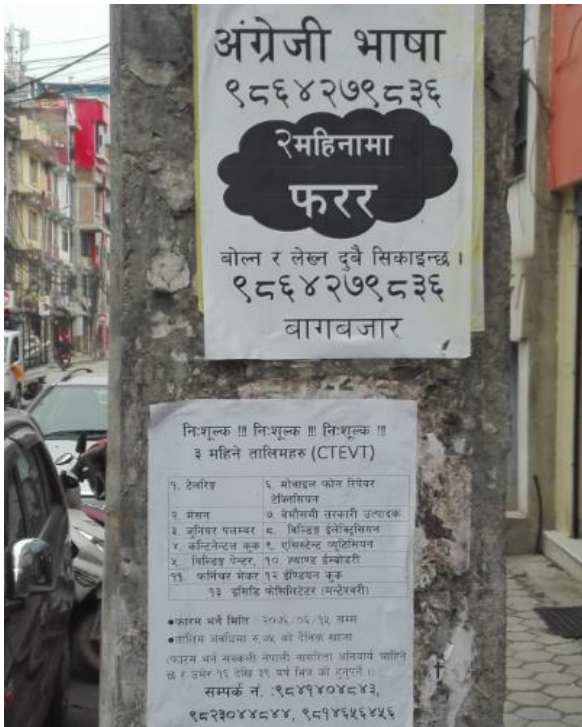 अंग्रेजी भाषा
९८६४२७९८३६
२महिनामा
फरर
बोल्न र लेख्न दुबै सिकाइन्छ ।
९८६४२७९८३६
बागबजार
नि:शूल्क !!! नि:शूल्क !!! नि:शूल्क !!!
३ महिने तालिमहरु (CTEVT)
१. टेलरिङ्ग ६. मोवाइल फोन रिपेयर
टेक्निसियन
२ मेसन ७ बेमौसमी तरकारी उत्पादक
३ जुनियर पलम्बर ८. बिल्डिङ्ग ईलेक्ट्रिसियन
४. कन्टिनेन्टल कूक ९. एसिस्टेन्ट व्युटिसियन
५. बिल्डिङ्ग पेन्टर, १० ह्याण्ड ईम्ब्रोडरी
११ फर्निचर मेकर १२ ईण्डियन कूक
१३ इसिडि फेसिलिटेटर (मन्टेश्वरी)
●फारम भर्ने मिति : २०७६/०६/१५ सम्म
●तालिम अवधिमा रु.७५ को दैनिक खाजा
(फारम भर्न सक्कली नेपाली नागरिता अनिवार्य चाहिने
छ र उमेर १६ देखि ३९ वर्ष भित्र को हुनुपर्ने ।)
सम्पर्क नं. :९८४१४०४८४३,
९८२३०४४८४४, ९८१४६५६४५६